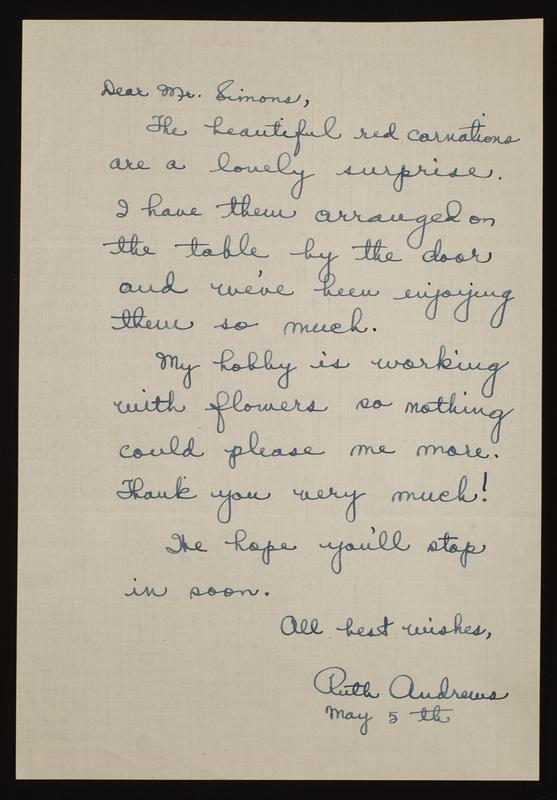 Dear Mr. Simons,
The beautiful red carnations
are a lovely surprise.
I have them arranged on
the table by the door
and we've been enjoying
them so much.
My hobby is working
with flowers so nothing
could please me more.
Thank you very much!
We hope you'll stop
in soon.
All best wishes,
Ruth Andrews
May 5 th